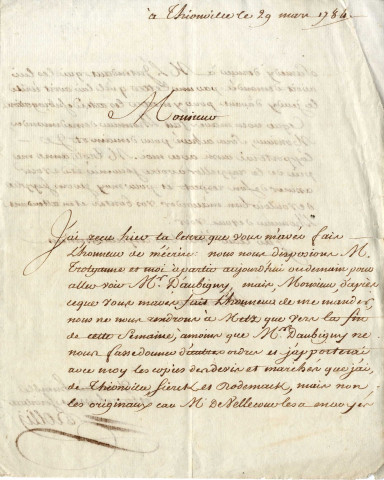 à Thionville le 29 mars 1784
Monsieur
J'ai receu hier la letre que vous m'avée fait
L'honneur de m'écrire nous nous disposions M.
Trotyanne et moi apartir aujourd'hui oudemain pour
aller voir Mr. Daubigny, mais Monsieur daprés
ceque vous m'avée fait L'honneur de me mander,
nous ne nous rendrons à Metz que vers la fin
de cette Semaine, amoins que Mr. Daubigny ne
nous fasse donner d'autre ordres et j'apporterai
avec moy les copies des devis et marchés que j'ai,
de Thionville Sierck et Rodemack, mais non
les originaux car Mr. De Pellecour les a envoyés